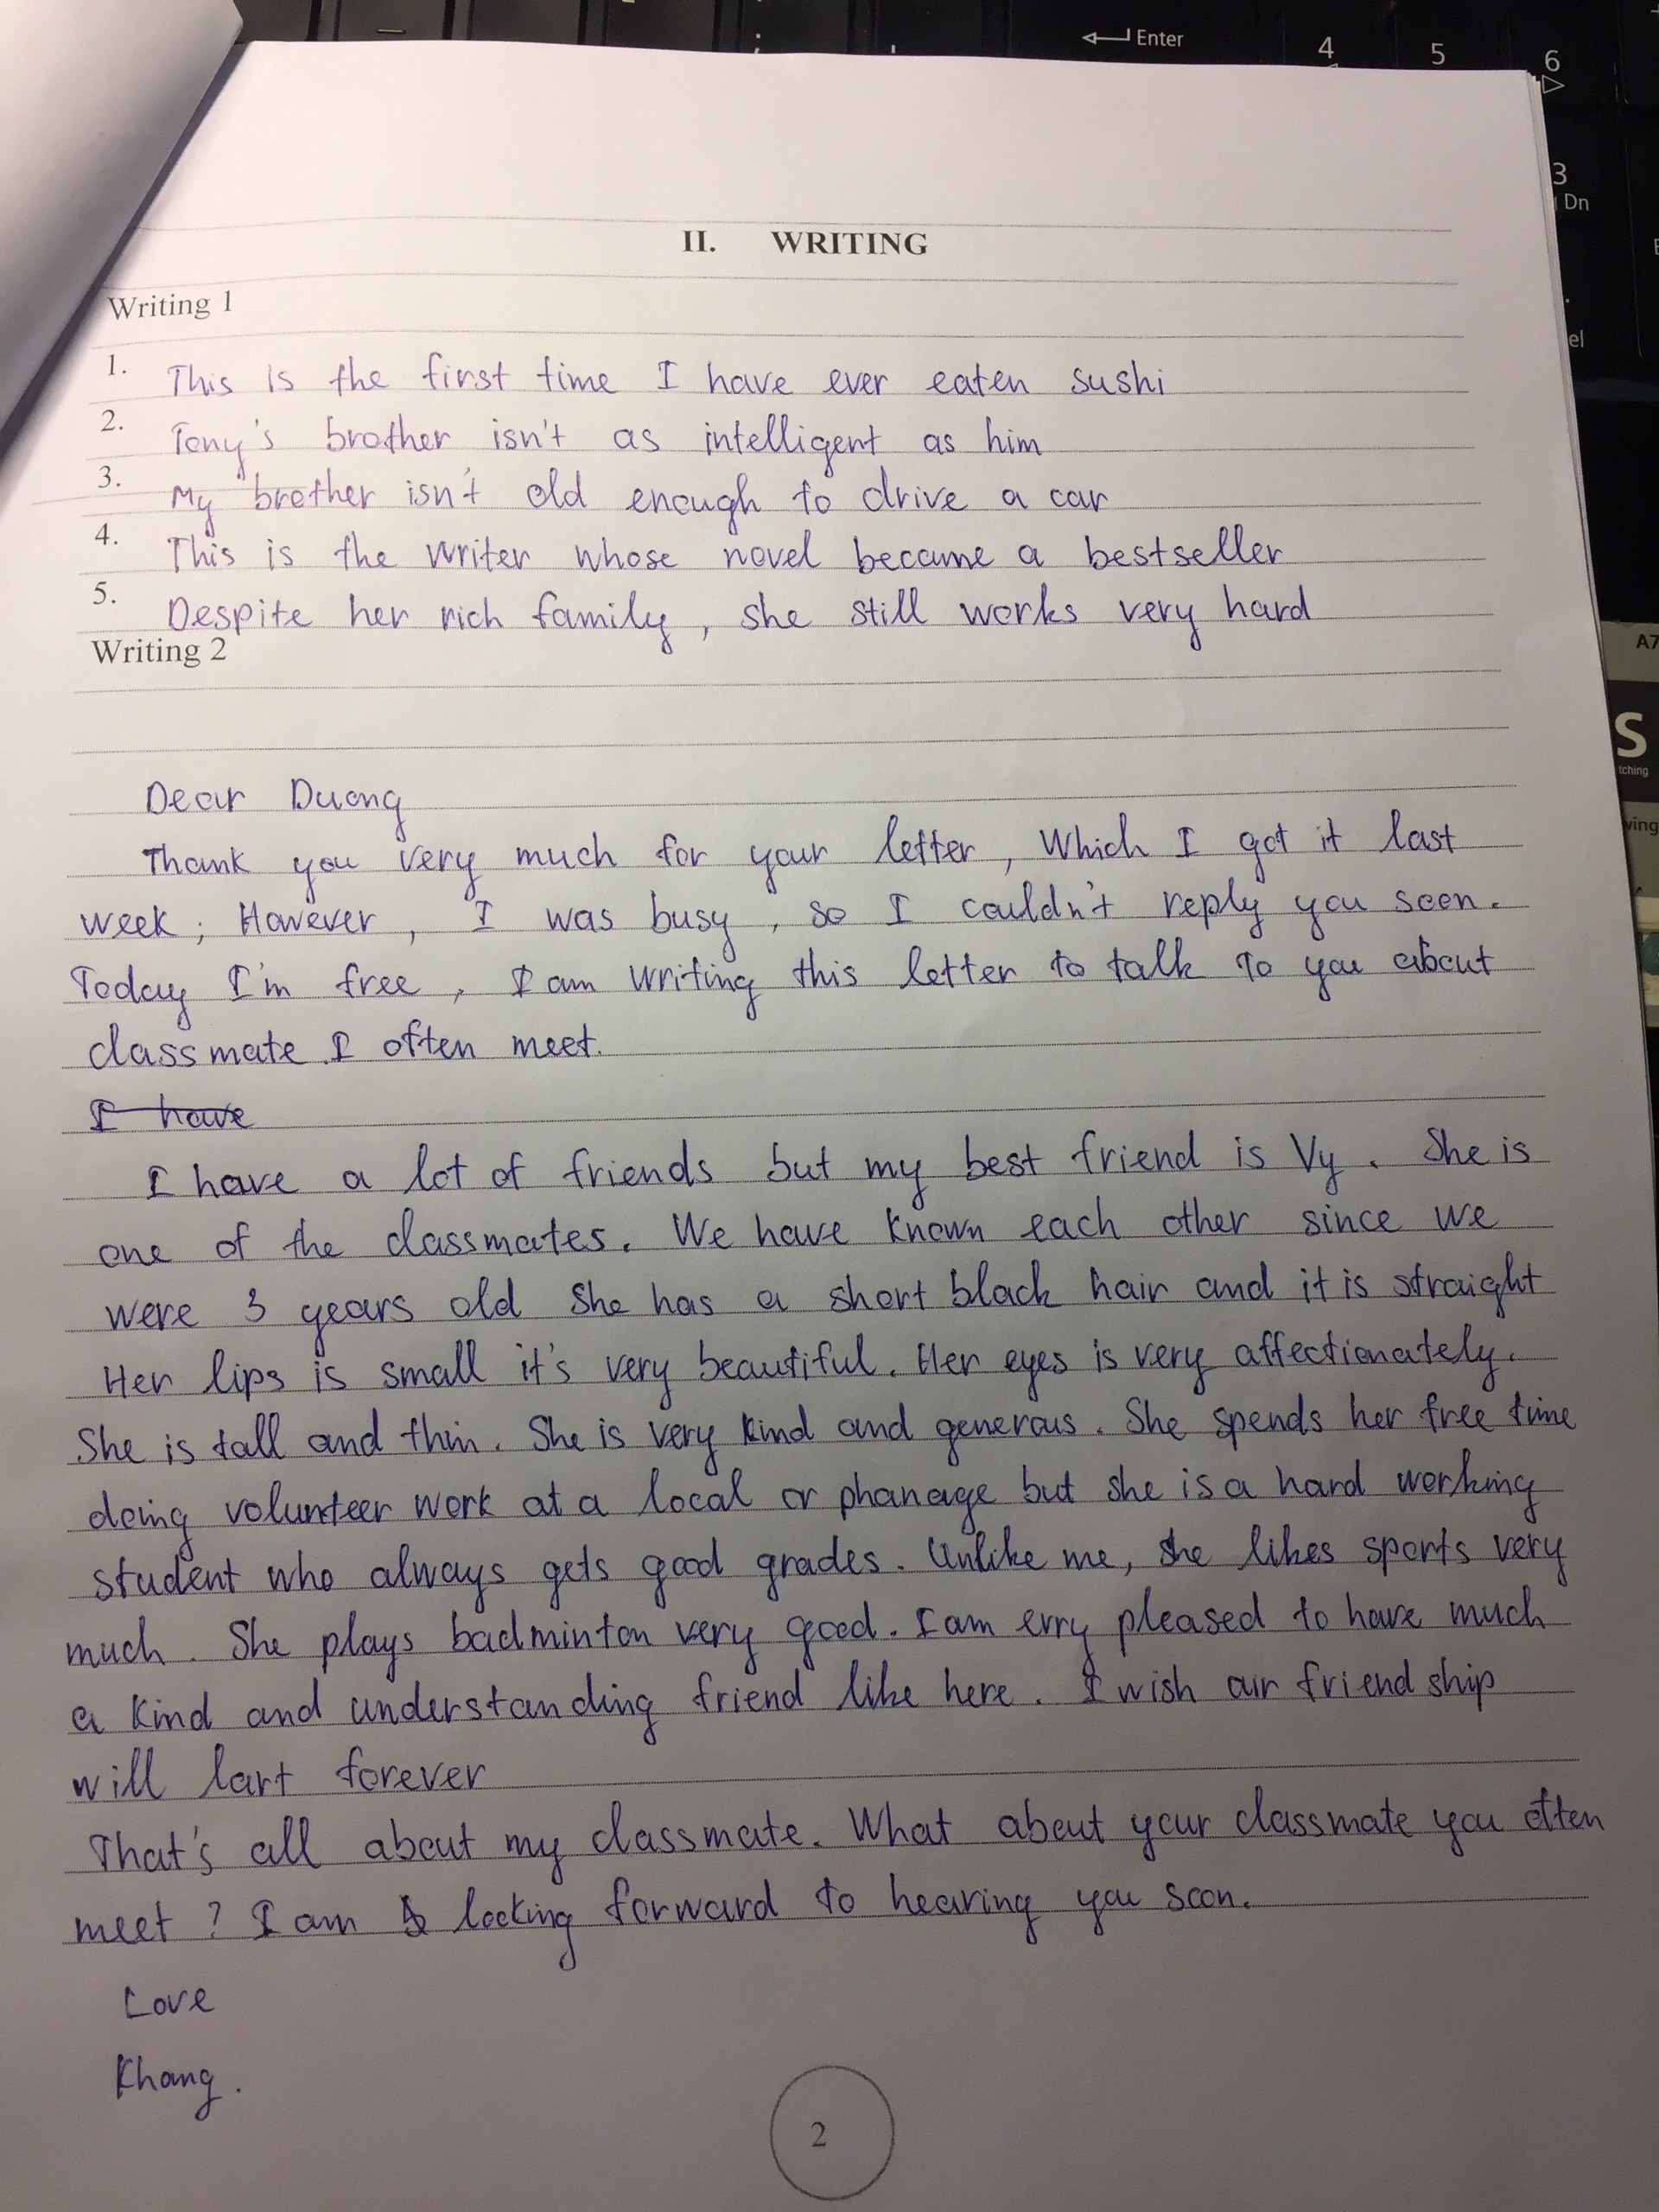 Enter
4
5
6
3
Dn
el
A7
S
tching
II. WRITING
Writing 1
1. This is the first time I have ever eaten sushi
2. Tony's brother isn't as intelligent as him
3. My brother isn't old enough to drive a car
4. This is the writer whose novel became a bestseller
5. Despite her rich family, she still works very hard
Writing 2
Dear Duong
Thank you very much for your letter, Which I got it last
week; However, I was busy, so I couldn't reply you soon.
Today I'm free, I am writing this letter to talk to you about
classmate I often meet.
I have
I have a lot of friends but my best friend is Vy. She is
one of the classmates. We have known each other since we
were 3 years old She has a short black hair and it is straight
Her lips is small it's very beautiful. Her eyes is very affectionately.
She is tall and thin. She is very kind and generous. She spends her free time
doing volunteer work at a local or phanage but she is a hard working
student who always gets good grades. Unlike me, she likes sports very
much. She plays badminton very good. I am erry pleased to have much
a kind and understanding friend like here. I wish our friend ship
will lart forever
That's all about my classmate. What about your classmate you often
meet? I am looking forward to hearing you soon.
Love
Khang.
2